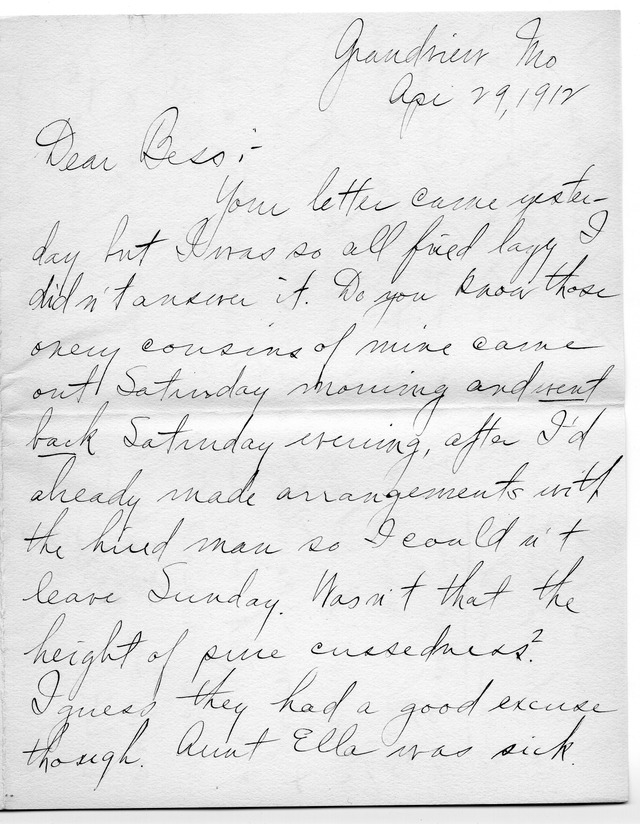 Grandview Mo
Apr 29, 1912
Dear Bess:-
Your letter came yester-
day but I was so all fired lazy I
didn't answer it. Do you know those
onery cousins of mine came
out Saturday morning and went
back Saturday evening, after I'd
already made arrangements with
the hired man so I couldn't
leave Sunday. Wasn't that the
height of pure cussedness?
I guess they had a good excuse
though. Aunt Ella was sick.